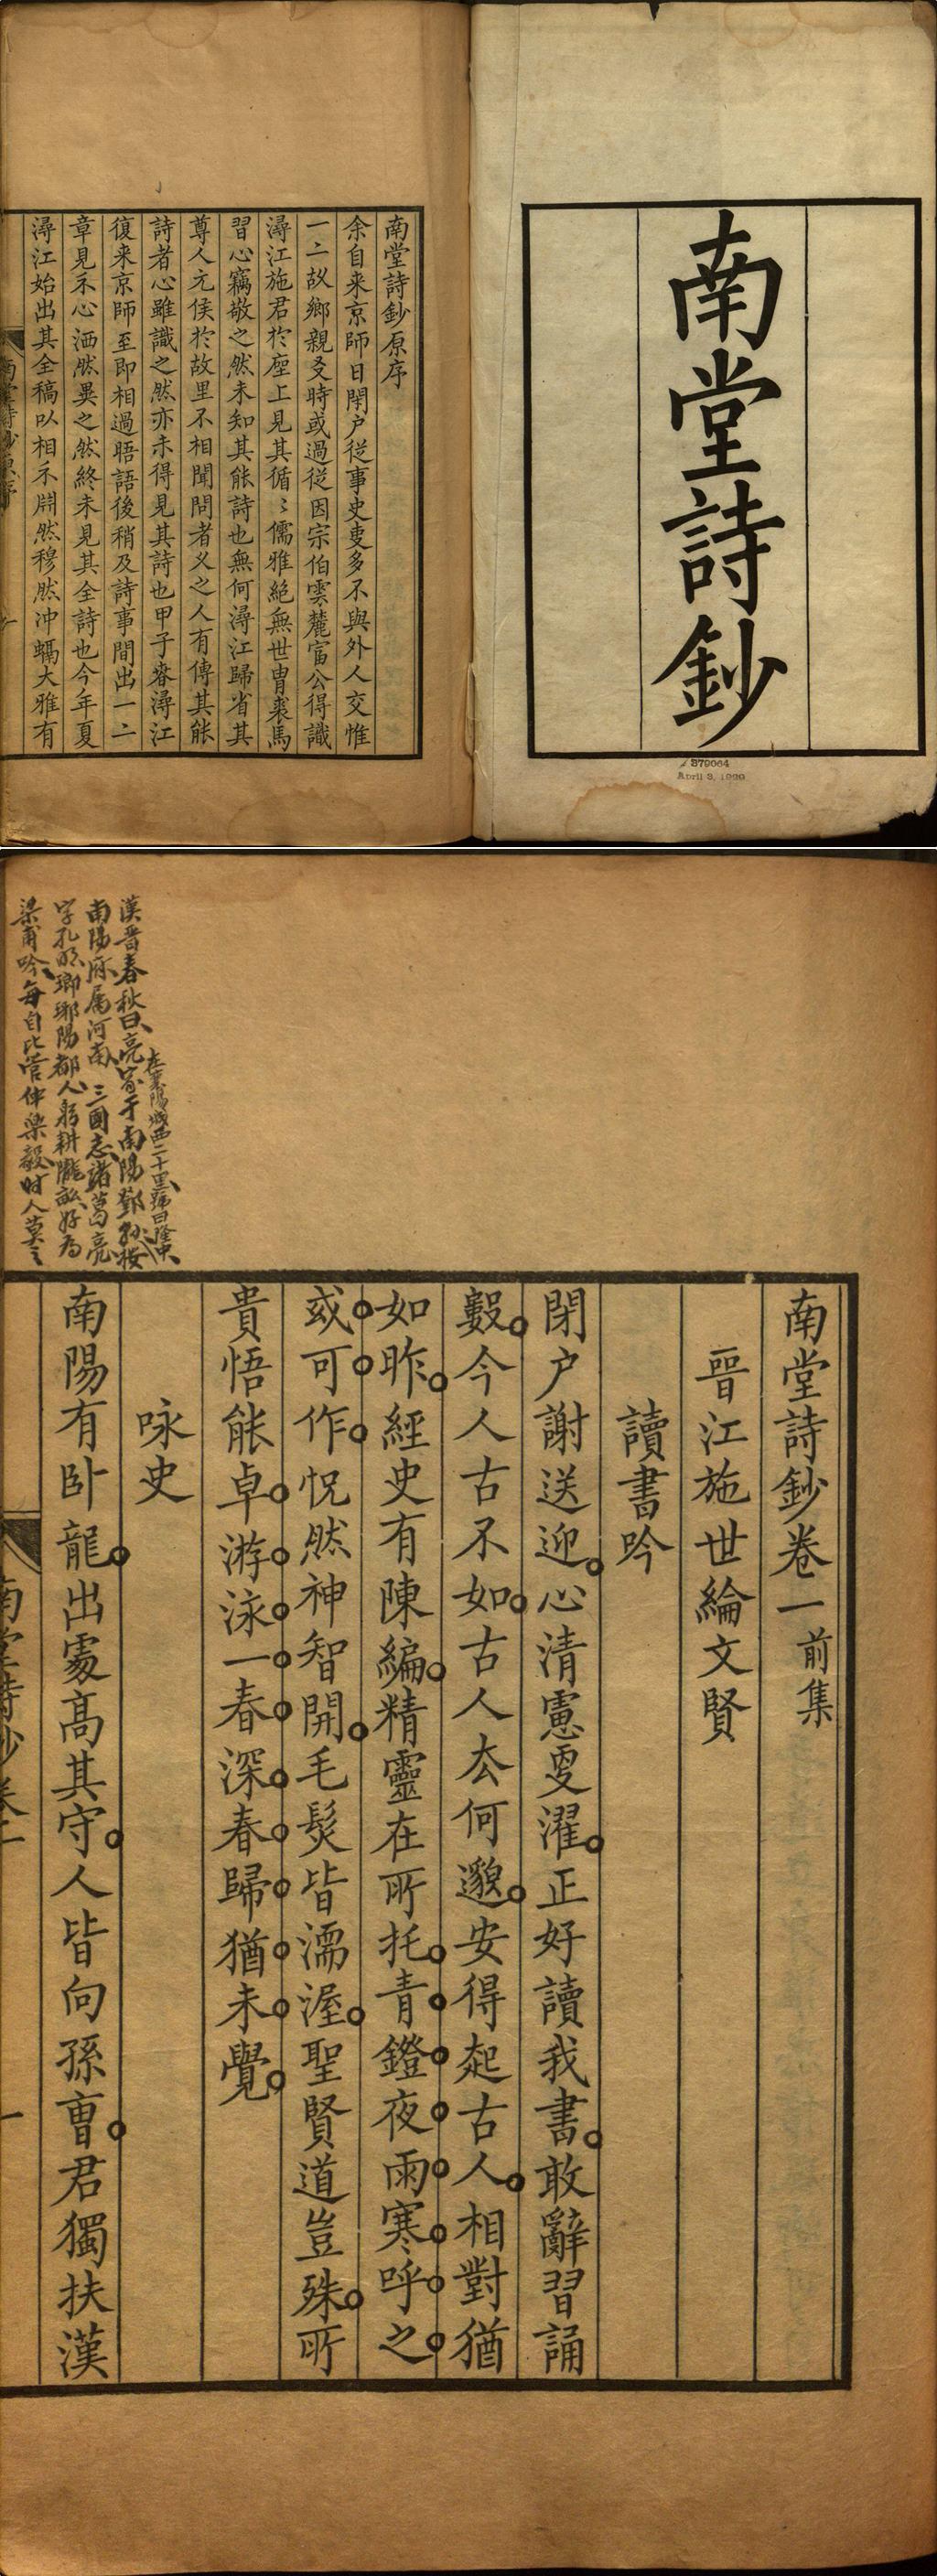 南堂詩鈔
379064
April 3, 1926
南堂詩鈔原序
余自来京師日閉户從事史叓多不與外人交惟
一二故鄉親友時或過從因宗伯雲麓富公得識
潯江施君於座上見其循〻儒雅絕無世冑裘馬
習心竊敬之然未知其能詩也無何潯江歸省其
尊人元侯於故里不相聞問者乂之人有傳其能
詩者心雖識之然亦未得見其詩也甲子春潯江
復来京師至即相過晤語後稍及詩事間出一二
章見示心洒然異之然終未見其全詩也今年夏
潯江始出其全稿以相示開然穆然冲瀜大雅有
南堂詩鈔原序
一
漢晉春秋曰亮家于南陽鄧縣
在襄陽城西二十里號曰隆中
南陽府属河南 三國志諸葛亮
字孔明瑯琊陽都人躬耕隴畝好為
梁甫吟每自比管仲樂毅时人莫之
南堂詩鈔卷一 前集
晉江施世綸文賢
讀書吟
閉户謝送迎心清慮叓濯正好讀我書敢辭習誦
數今人古不如古人去何邈安得起古人相對猶
如昨經史有陳編精靈在所托青鐙夜雨寒呼之
或可作怳然神智開毛髮皆濡渥聖賢道豈殊所
貴悟能卓游泳一春深春歸猶未覺
咏史
南陽有卧龍出處高其守人皆向孫曹君獨扶漢
南堂詩鈔卷一
一